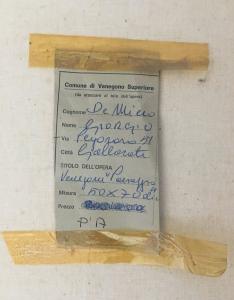 Comune di Venegono Superiore
(da attaccare al tela dell'opera)
Cognome De Micco
Nome Giorgio
Via
Città Gallarate
TITOLO DELL'OPERA
Venegoni "Paesaggio
Misura 50x70
Prezzo
P'A